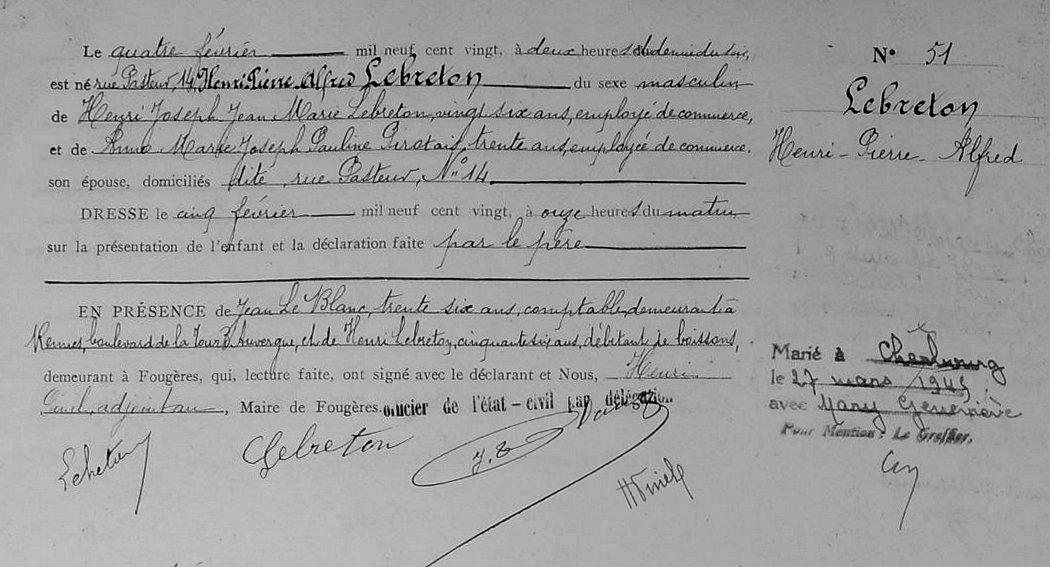 Le quatre février mil neuf cent vingt, à deux heures et demie du soir,
est né rue Pasteur, 14, Henri Pierre Alfred Lebreton du sexe masculin
de Henri Joseph Jean Marie Lebreton, vingt six ans, employé de commerce,
et de Anne Marie Joseph Pauline Pirotais, trente ans, employée de commerce.
son épouse, domiciliés dite rue Pasteur, N° 14
DRESSE le cinq février mil neuf cent vingt, à onze heures du matin
sur la présentation de l'enfant et la déclaration faite par le père
EN PRÉSENCE de Jean Le Blanc, trente six ans, comptable, demeurant à
Rennes, boulevard de la Tour d'Auvergne, et de Henri Lebreton, cinquante six ans, débitant de boissons,
demeurant à Fougères, qui, lecture faite, ont signé avec le déclarant et Nous, Henri
adjoint au, Maire de Fougères. officier de l'état-civil par délégation
Lebreton
Lebreton
N° 51
Lebreton
Henri-Pierre-Alfred
Marié à Cherbourg
le 27 mars 1945
avec Mary Geneviève
Pour Mention : Le Greffier,